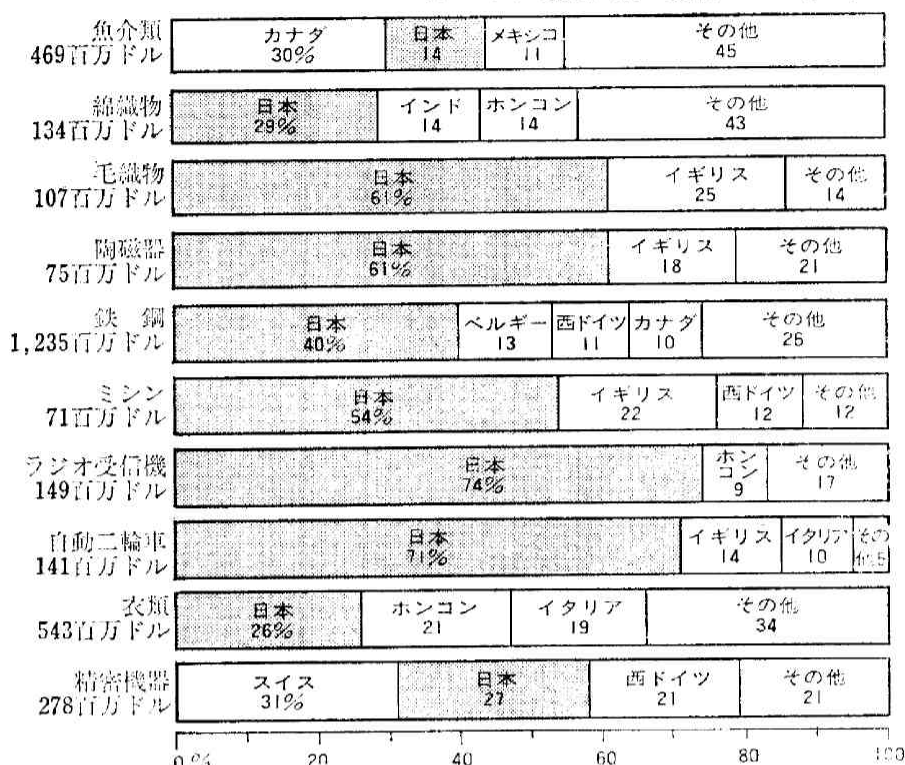 魚介類
469百万ドル
カナダ
30%
日本
14
メキシコ
11
その他
45
綿織物
134百万ドル
日本
29%
インド
14
ホンコン
14
その他
43
毛織物
107百万ドル
日本
61%
イギリス
25
その他
14
陶磁器
75百万ドル
日本
61%
イギリス
18
その他
21
鉄鋼
1,235百万ドル
日本
40%
ベルギー
13
西ドイツ
11
カナダ
10
その他
26
ミシン
71百万ドル
日本
54%
イギリス
22
西ドイツ
12
その他
12
ラジオ受信機
149百万ドル
日本
74%
ホン
コン
9
その他
17
自動二輪車
141百万ドル
日本
71%
イギリス
14
イタリア
10
その
他5
衣類
543百万ドル
日本
26%
ホンコン
21
イタリア
19
その他
34
精密機器
278百万ドル
スイス
31%
日本
27
西ドイツ
21
その他
21
0% 20 40 60 80 100